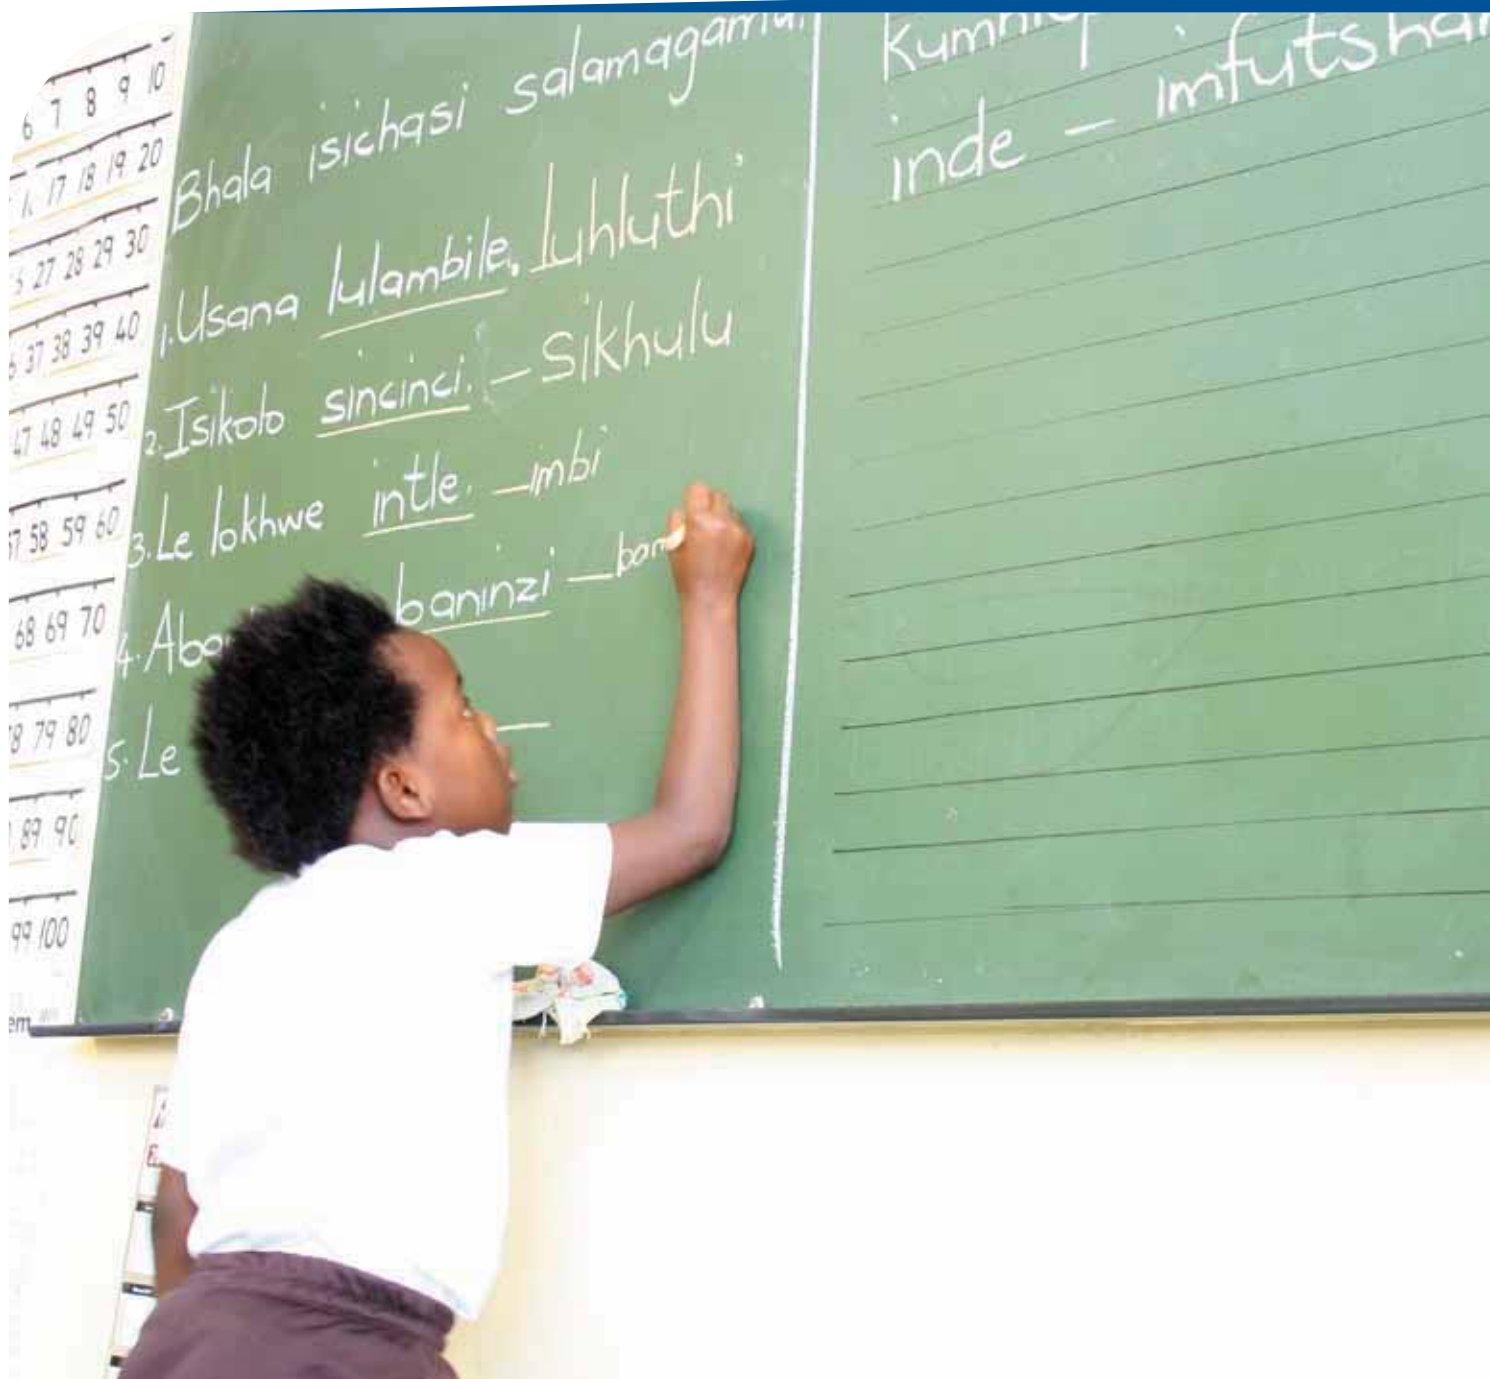 6 7 8 9 10
17 18 19 20
27 28 29 30
37 38 39 40
47 48 49 50
57 58 59 60
68 69 70
79 80
89 90
99 100
Bhala isichasi salamagama.
1. Usana lulambile. luhluthi
2. Isikolo sincinci. – Sikhulu
3. Le lokhwe intle. – imbi
4. baninzi – bam
5. Le –
inde –